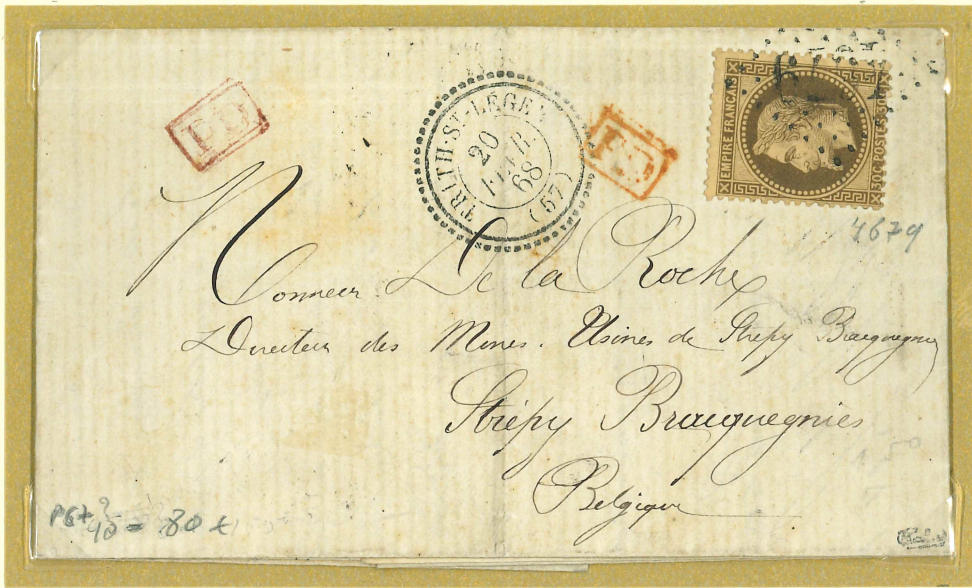 PD
TRITH-ST-LÉGER
20
FEVR
68
(57)
PD
EMPIRE FRANÇAIS
30C POSTES 30C
4679
Monsieur De la Roche
Directeur des Mines. Usines de Strépy Bracquegnies
Strépy Bracquegnies
Belgique
80